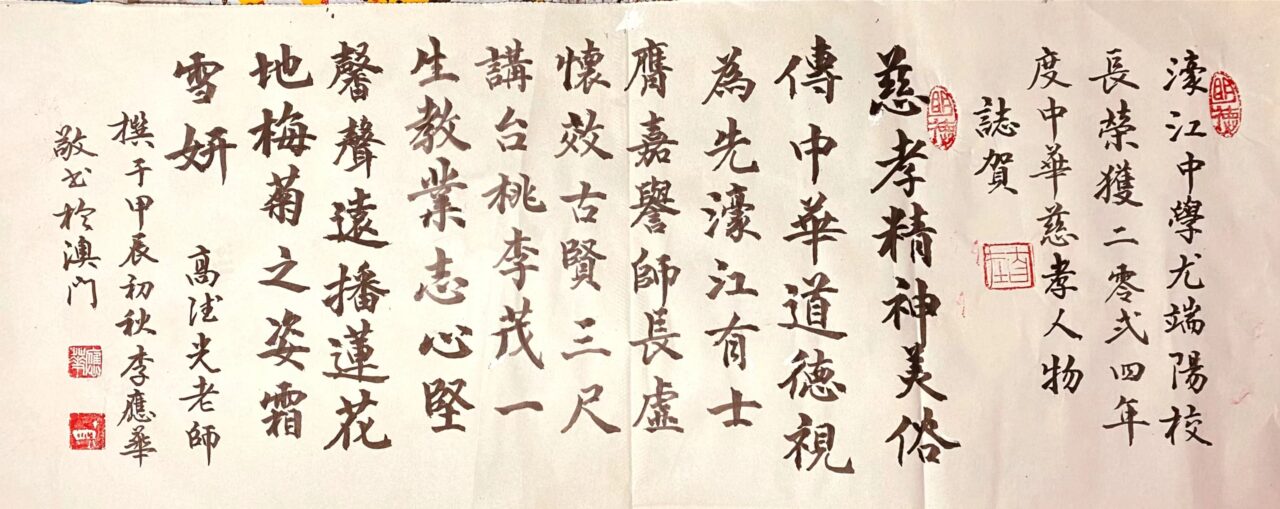 明德
濠江中學尤端陽校
長榮獲二零弍四年
度中華慈孝人物
誌賀
明德
慈孝精神美俗
傳中華道德視
為先濠江有士
膺嘉譽師長虛
懷效古賢三尺
講台桃李茂一
生教業志心堅
馨聲遠播蓮花
地梅菊之姿霜
雪妍
高光老師
撰于甲辰初秋李應華
敬书於澳門
應華